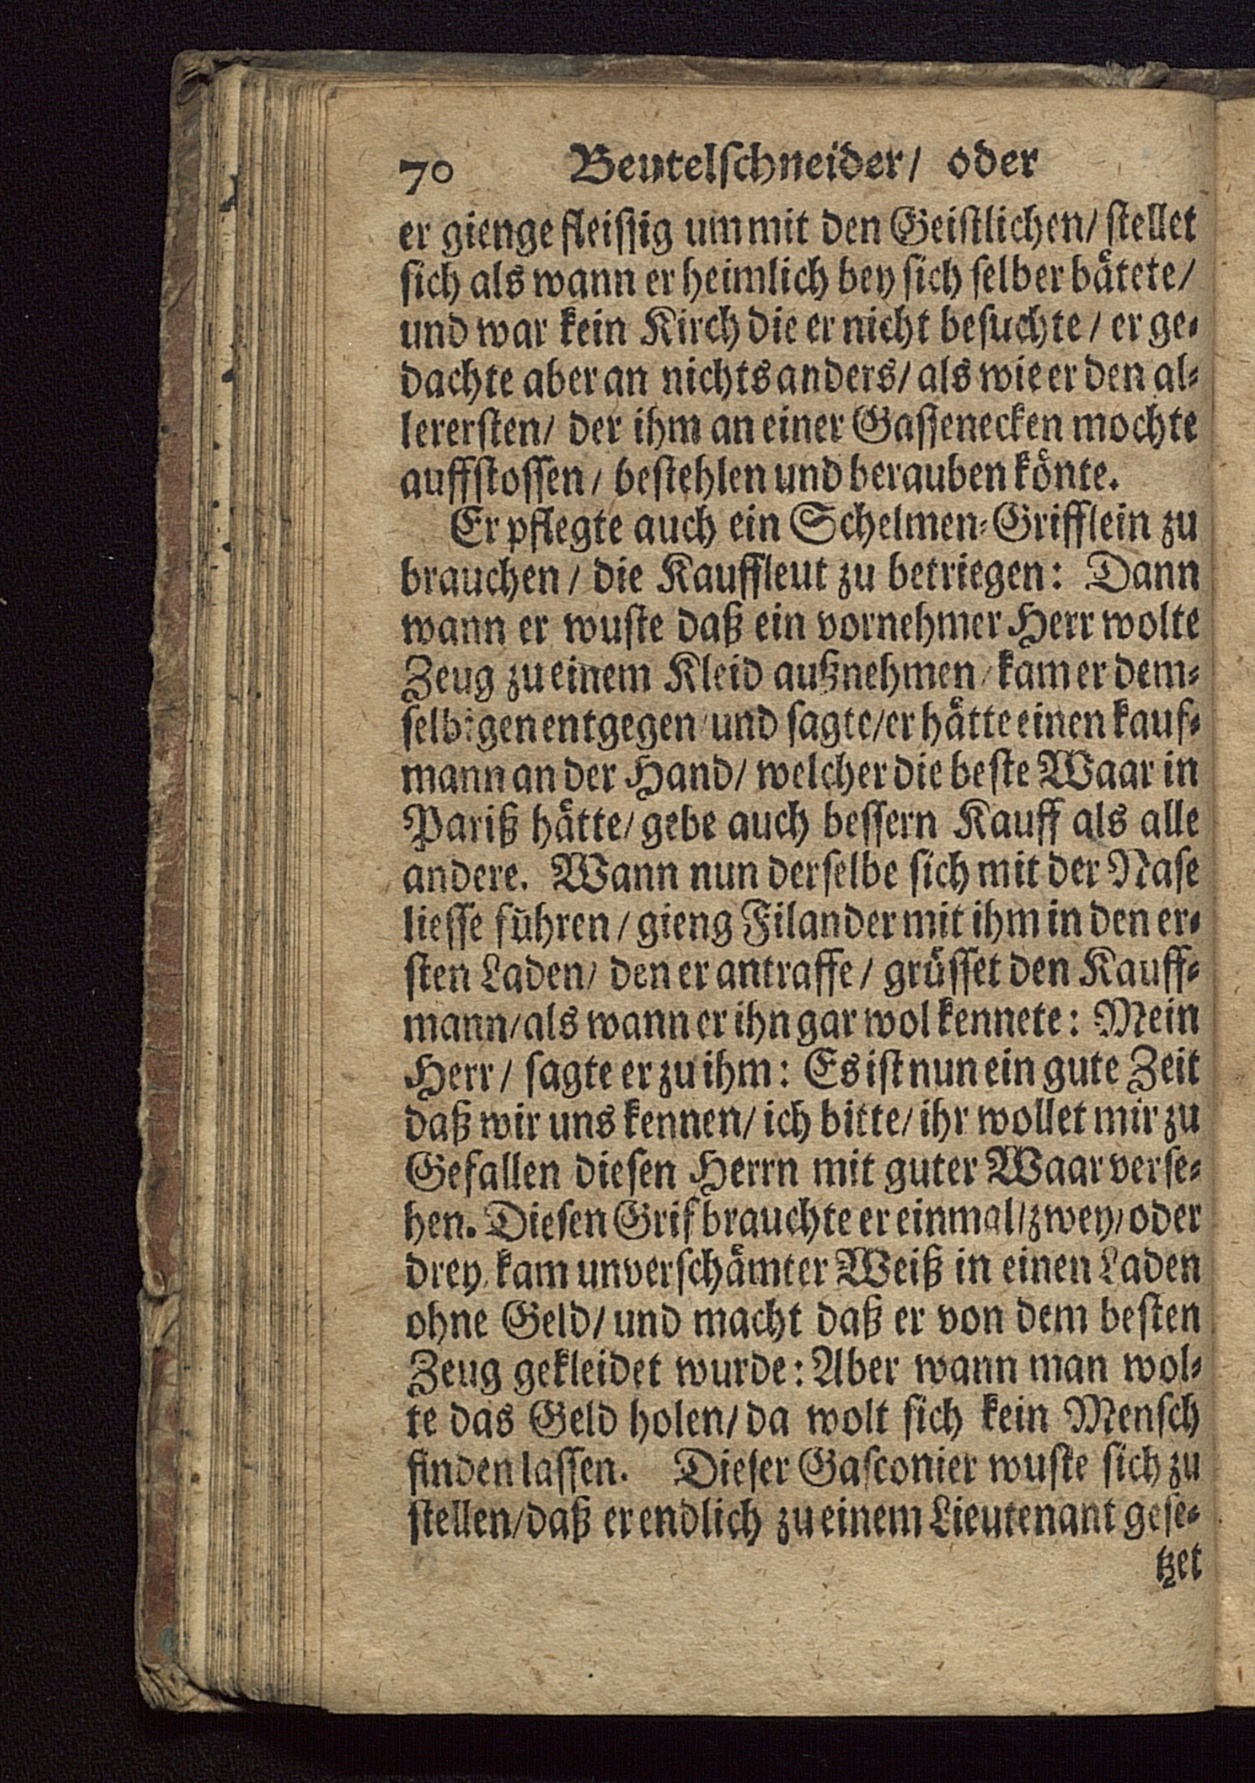 70 Beutelschneider/ oder
er gienge fleissig um mit den Geistlichen/ stellet
sich als wann er heimlich bey sich selber bätete/
und war kein Kirch die er nicht besuchte / er ge-
dachte aber an nichts anders/ als wie er den al-
lerersten/ der ihm an einer Gassenecken mochte
auffstossen / bestehlen und berauben könte.
Er pflegte auch ein Schelmen-Grifflein zu
brauchen / die Kauffleut zu betriegen: Dann
wann er wuste daß ein vornehmer Herr wolte
Zeug zu einem Kleid außnehmen / kam er dem-
selbigen entgegen / und sagte/er hätte einen kauf-
mann an der Hand/ welcher die beste Waar in
Pariß hätte/ gebe auch bessern Kauff als alle
andere. Wann nun derselbe sich mit der Nase
liesse führen / gieng Filander mit ihm in den er-
sten Laden/ den er antraffe / grüsset den Kauff-
mann/als wann er ihn gar wol kennete: Mein
Herr / sagte er zu ihm: Es ist nun ein gute Zeit
daß wir uns kennen/ ich bitte/ ihr wollet mir zu
Gefallen diesen Herrn mit guter Waar verse-
hen. Diesen Grif brauchte er einmal/zwey/oder
drey, kam unverschämter Weiß in einen Laden
ohne Geld/ und macht daß er von dem besten
Zeug gekleidet wurde: Aber wann man wol-
te das Geld holen/ da wolt sich kein Mensch
finden lassen. Dieser Gasconier wuste sich zu
stellen/daß er endlich zu einem Lieutenant gese-
tzet